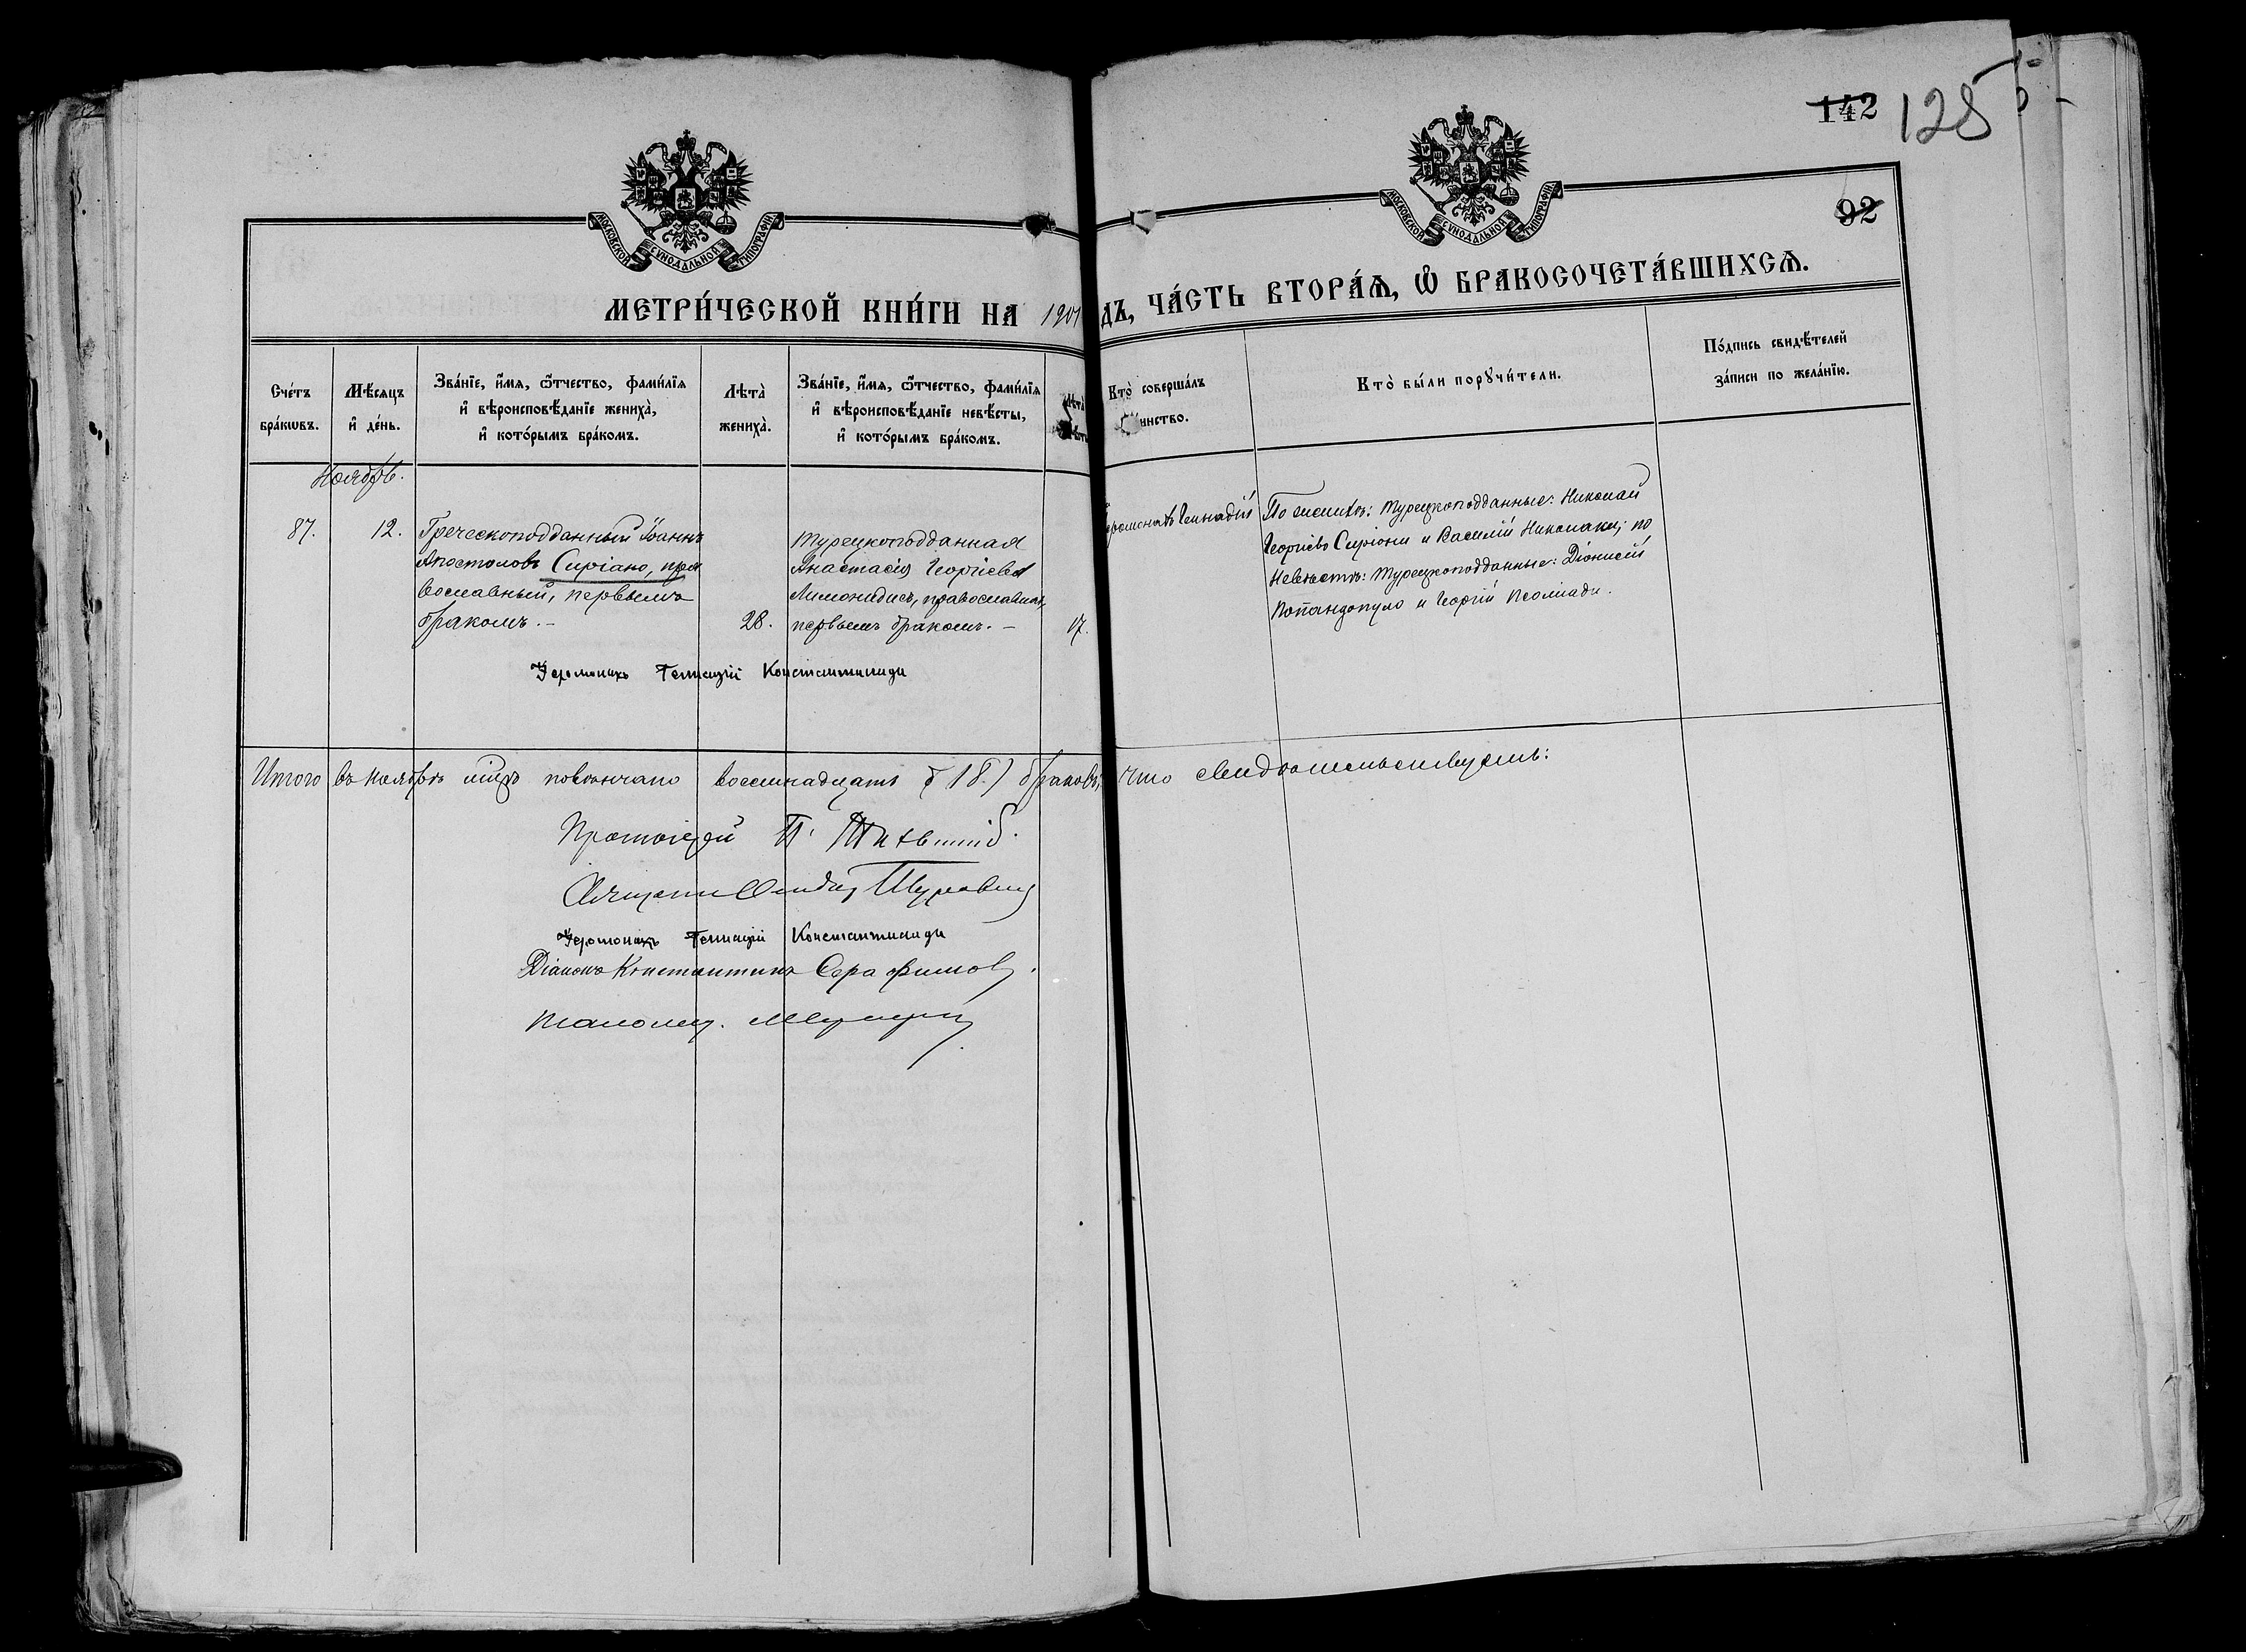 142 125
92
МОСКОВСКОЙ СѴНОДАЛЬНОЙ ТИПОГРАФІИ
МОСКОВСКОЙ СѴНОДАЛЬНОЙ ТИПОГРАФІИ
МЕТРИ́ЧЕСКОЙ КНИ́ГИ НА 190 ДЪ, ЧА́СТЬ ВТОРА́Ѧ, Ѽ БРАКОСОЧЕТА́ВШИХСѦ.
Сче́тъ
бра́кѡвъ.
Мѣ́сяцъ
и҆ де́нь.
Зва́нїе, и҆́мя, ѻ҆́тчество, фами́лїя
и҆ вѣроисповѣ́данїе жениха̀,
и҆ кото́рымъ бра́комъ.
Лѣта̀
жениха̀.
Зва́нїе, и҆́мя, ѻ҆́тчество, фами́лїя
и҆ вѣроисповѣ́данїе невѣ́сты,
и҆ кото́рымъ бра́комъ.
Лѣта̀
Кто̀ соверша́лъ
инство.
Кто̀ бы́ли порꙋчи́тели.
По́дпись свидѣ́телей
за́писи по жела́нїю.
Ноябрь.
87. 12.
Греческоподданный Іоаннъ
Апостоловъ Сиріано, пра
вославный, первымъ
бракомъ. –
28.
Турецкоподданная
Анастасія Георгіева
Лимонидисъ, православная,
первымъ бракомъ. –
17.
еромонахъ Геннадій
По женихѣ: турецкоподданные: Николай
Георгіевъ Сиріони и Василій Николаки; по
невѣстѣ: турецкоподданные: Діонисій
Попандопуло и Георгій Псоміади.
Іеромонахъ Геннадій Константиниди
Итого въ ноябрѣ мцѣ повѣнчано восемнадцать (18.) браковъ, что свидѣтельствуемъ:
Протоіерей П.
Іеромонахъ Геннадій Константиниди
Діаконъ Константинъ Серафимовъ.